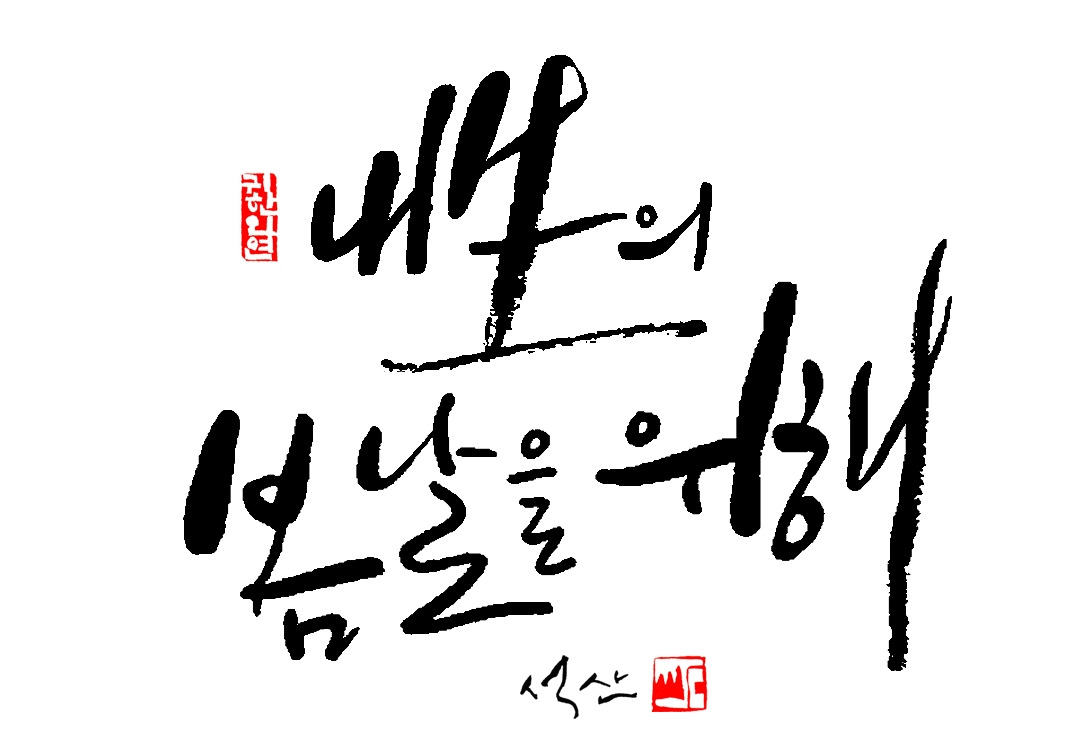 내 生의
봄날을 위해
석산